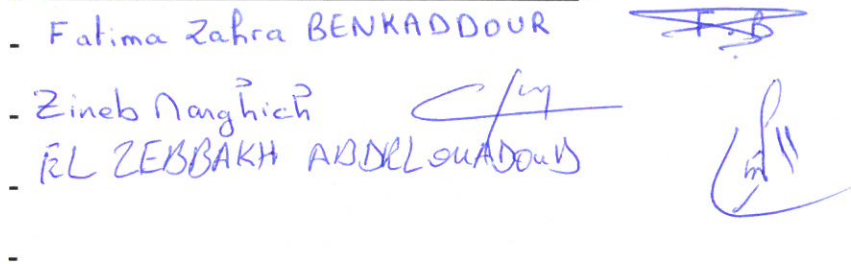 - Fatima Zahra BENKADDOUR F.B
- Zineb Marghich
- EL ZEBBAKH ABDELOUADOUD
-